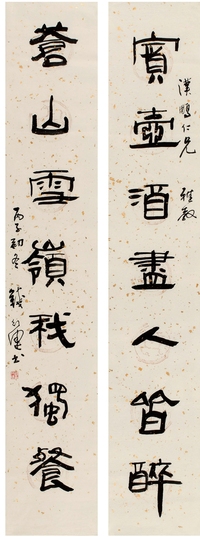 漢鵬仁兄 雅教
賓壺酒盡人皆醉
蒼山雪嶺我獨餐
丙子初冬